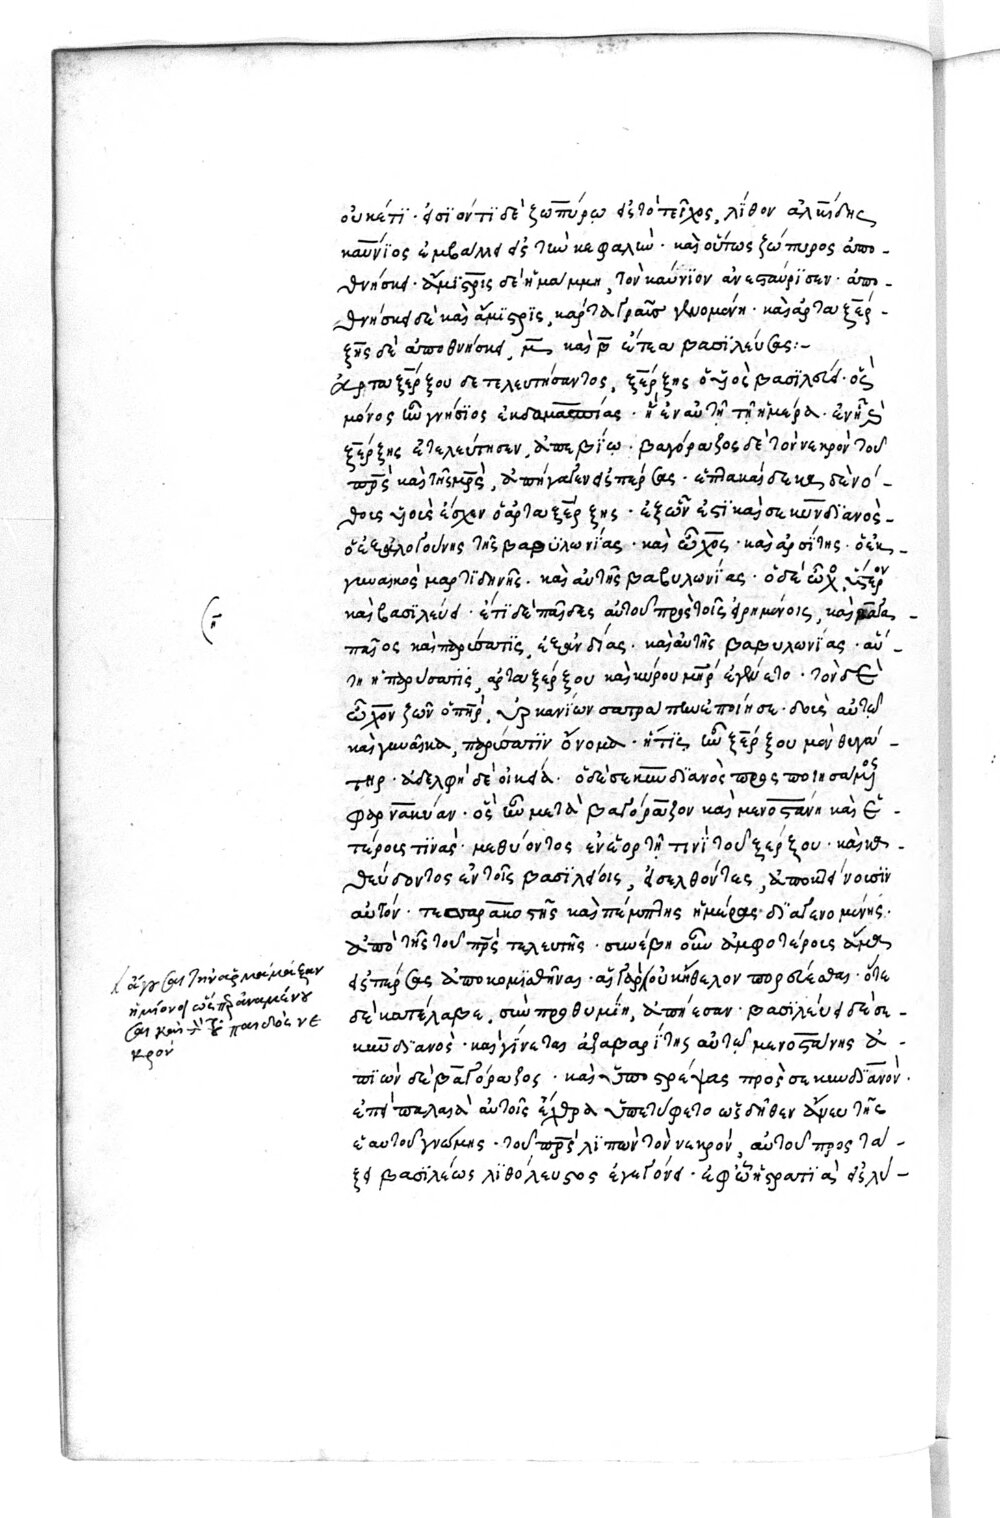 οὐκέτι· εἰσιόντι δὲ ζωπύρω εἰς τὸ τεῖχος, λίθον ἀλκίδης
καύνιος ἐμβάλλει εἰς τὴν κεφαλήν· καὶ οὕτως ζώπυρος ἀπο-
θνήσκει· ἄμιστρις δὲ ἡ μάμμη, τὸν καύνιον ἀνεσταύρισεν· ἀπο-
θνήσκει δὲ καὶ ἄμιστρις, κάρτα γραῦς γενομένη· καὶ ἀρταξέρ-
ξης δὲ ἀποθνήσκει, μ̅ καὶ β̅ ἔτεα βασιλεύσας:-
Ἀρταξέρξου δὲ τελευτήσαντος, ξέρξης ὁ υἱὸς βασιλεύει· ὃς
μόνος ἦν γνήσιος ἐκ δαμασπίας· ἣ ἐν αὐτῇ τῇ ἡμέρα· ἐν ᾗ καὶ
ξέρξης ἐτελεύτησεν, ἀπεβίω· βαγόραζος δὲ τὸν νεκρὸν τοῦ
πρς καὶ τῆς μρς, ἀπήγαγεν εἰς πέρσας· ἑπτακαίδεκα δὲ νό-
θους υἱοὺς ἔσχεν ὁ ἀρταξέρξης· ἐξ ὧν ἐστὶ καὶ σεκυνδιανὸς
ὁ ἐξ ἀλογούνης τῆς βαβυλωνίας· καὶ ὦχος· καὶ ἀρσίτης· ὁ ἐκ
γυναικὸς μαρτιδηνῆς· καὶ αὐτῆς βαβυλωνίας· ὁ δὲ ὦχος ὕστερον
καὶ βασιλεύει· ἔτι δὲ παῖδες αὐτοῦ πρὸς τοῖς εἰρημένοις, καὶ βαγα-
παῖος καὶ παρύσατις, ἐξ ἀνδίας· καὶ αὐτῆς βαβυλωνίας· αὕ-
τη ἡ παρύσατις, ἀρταξέρξου καὶ κύρου μηρ ἐγένετο· τὸν δὲ
ὦχον ζῶν ὁ πηρ, ὑρκανίων σατράπην ἐποίησε· δοὺς αὐτῷ
καὶ γυναῖκα, παρύσατιν ὄνομα· ἥτις ἦν ξέρξου μὲν θυγά-
τηρ· ἀδελφὴ δὲ οἰκεία· ὁ δὲ σεκυνδιανὸς προσποιησάμενος
φαρνακύαν· ὃς ἦν μετὰ βαγόραζον καὶ μενοστάνη καὶ ἑ-
τέρους τινάς· μεθύοντος ἐν ἑορτῇ τινὶ τοῦ ξέρξου· καὶ κα-
θεύδοντος ἐν τοῖς βασιλείοις, εἰσελθόντες, ἀποκτείνουσιν
αὐτόν· τεσσαρακοστῆς καὶ πέμπτης ἡμέρας διαγενομένης·
ἀπὸ τῆς τοῦ πρς τελευτῆς· συνέβη οὖν ἀμφοτέροις ἅμα
εἰς πέρσας ἀποκομισθῆναι· αἱ γὰρ οὐκ ἤθελον πορεύεσθαι· ὅτε
δὲ κατέλαβε, σὺν προθυμίη, ἀπήεσαν· βασιλεύει δὲ σε-
κυνδιανὸς· καὶ γίνεται ἀζαβαρίτης αὐτῷ μενοστάνης ἀ-
πιὼν δὲ βαγόραζος· καὶ ὑποστρέψας πρὸς σεκυνδιανὸν·
ἐπεὶ παλαιὰ αὐτοῖς ἔχθρα ὑπετύφετο ὡς δῆθεν ἄνευ τῆς
ἑαυτοῦ γνώμης· τοῦ πρς λιπὼν τὸν νεκρόν, αὐτοῦ προστά-
ξει βασιλέως λιθόλευστος ἐγεγόνει· ἐφ' ᾧ ἡ στρατιὰ εἰς λύ-
ἄγουσαι τὴν ἁρμάμαξαν
ἡμίονοι ὥσπερ ἀναμένου
σαι καὶ τὸν τοῦ παιδὸς νε
κρόν